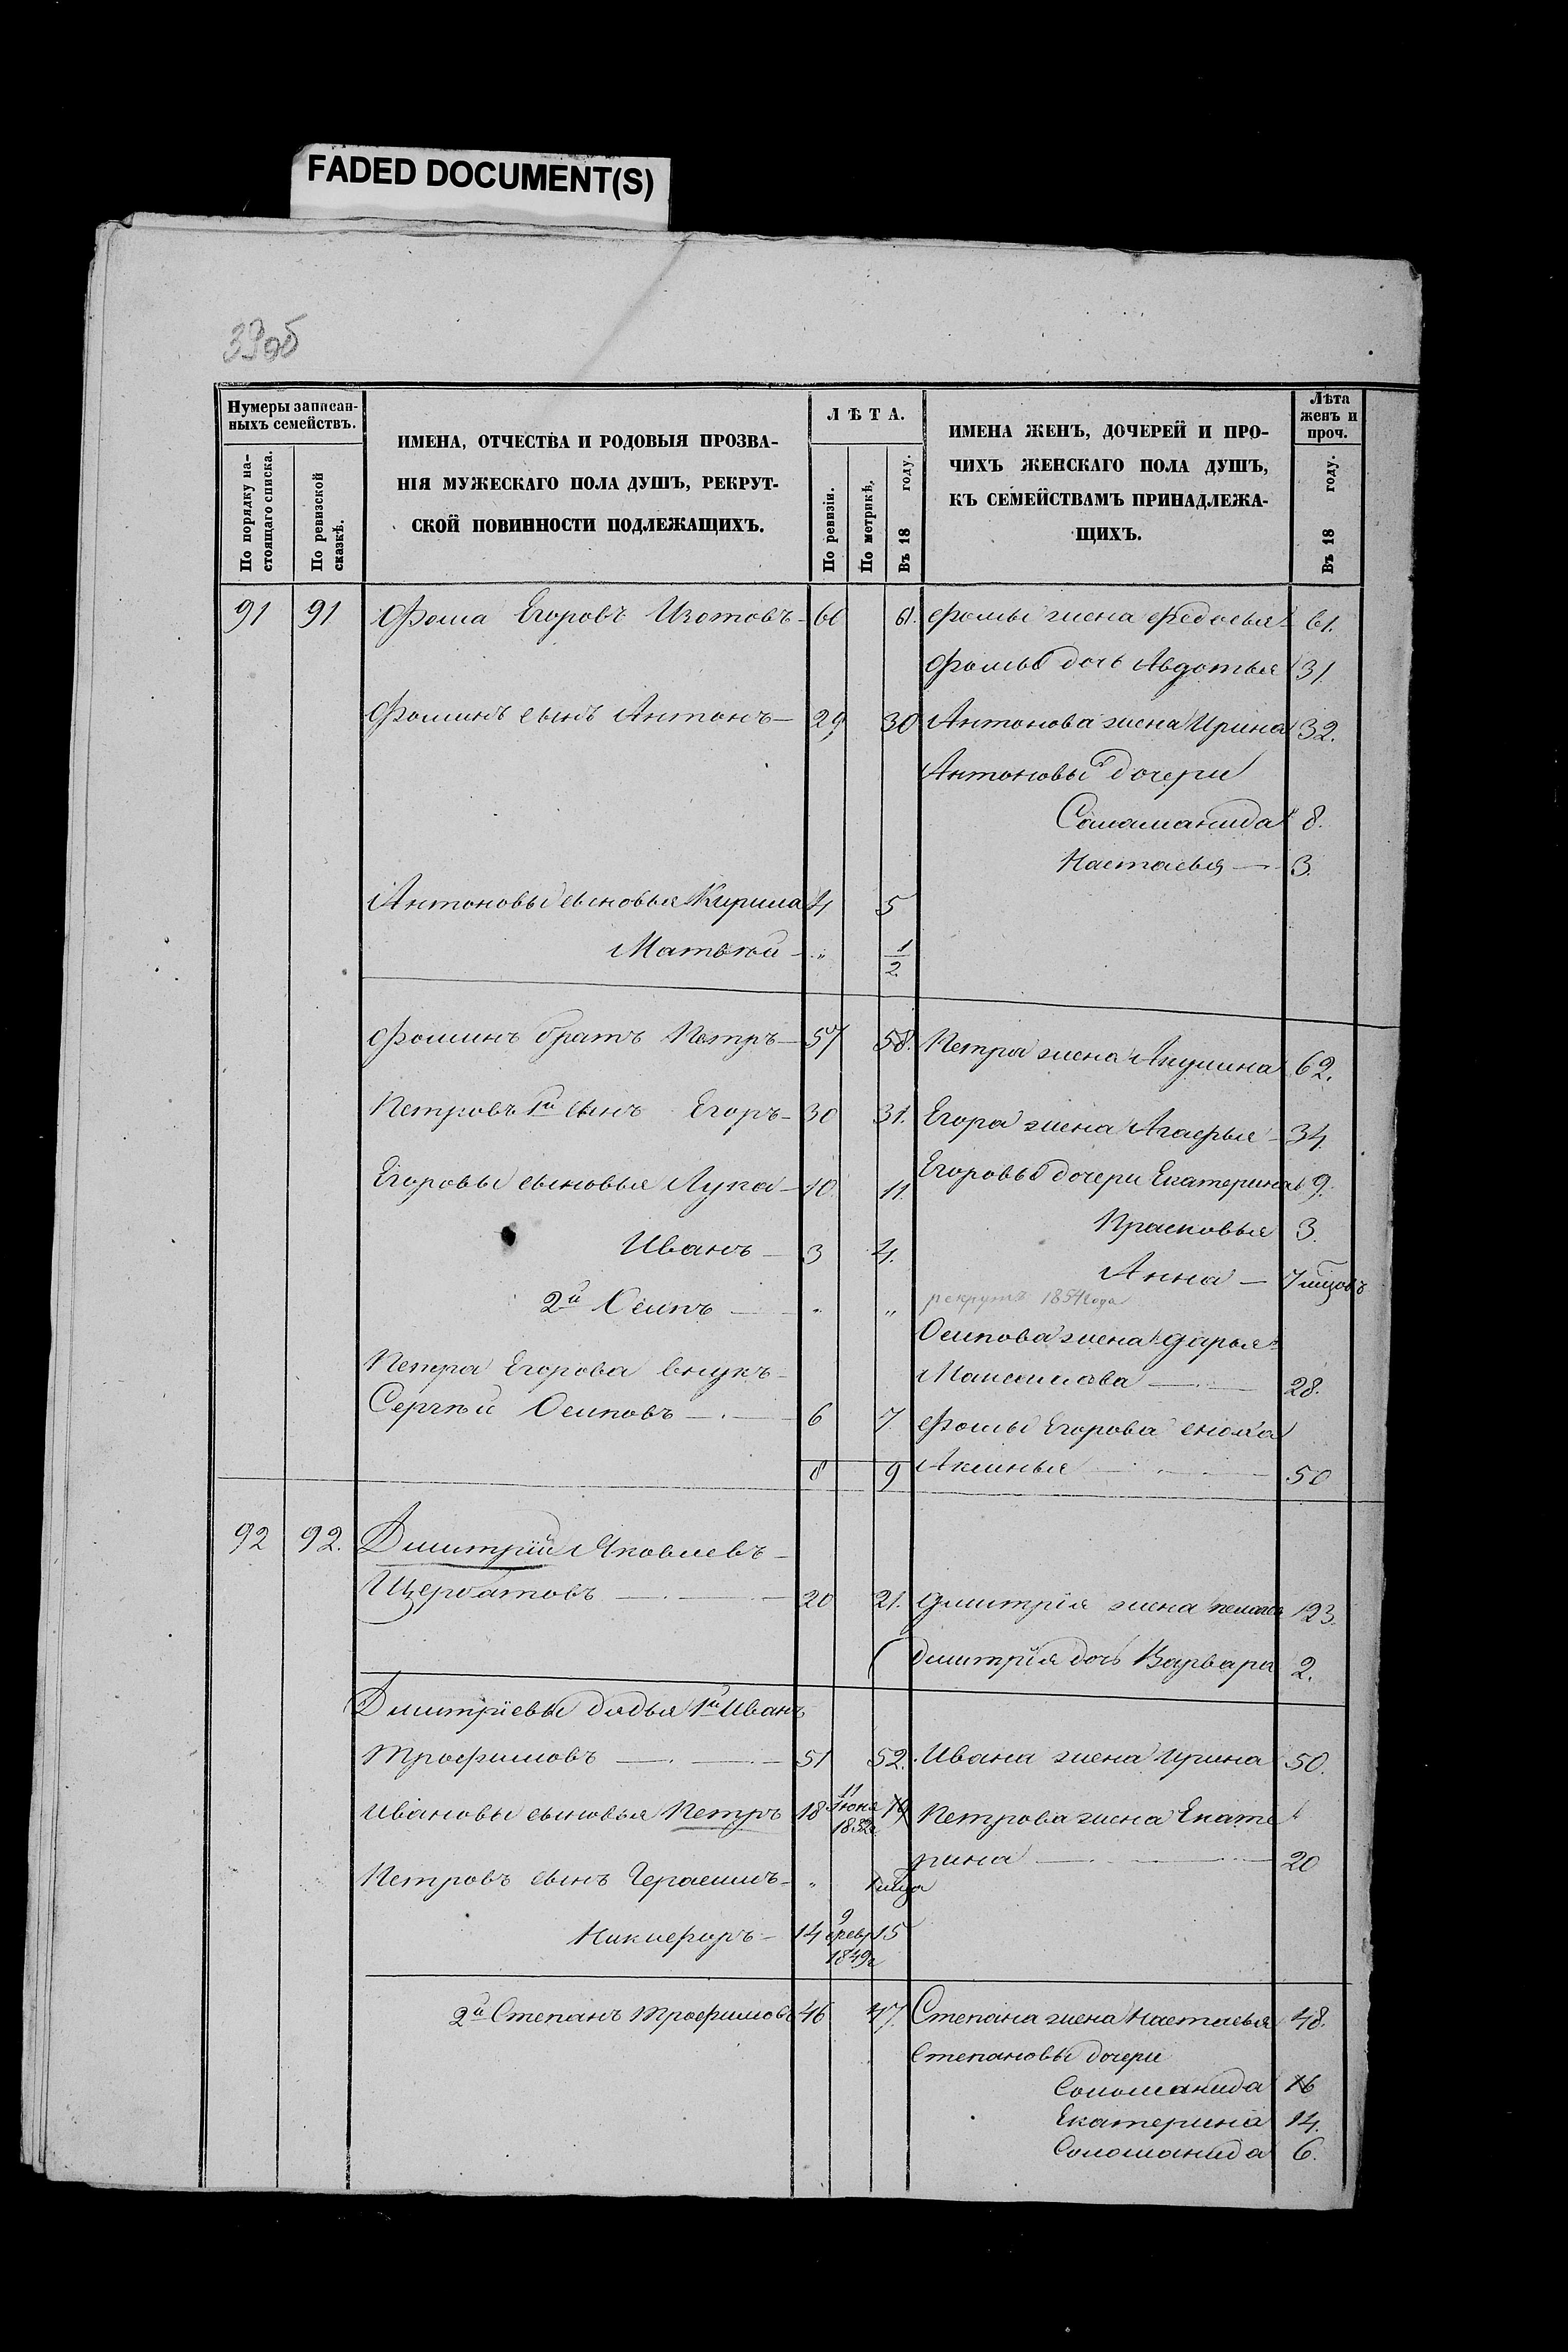 FADED DOCUMENT(S)
39об
Нумеры записан-
ныхъ семействъ.
По порядку на-
стоящаго списка.
По ревизской
сказкѣ.
ИМЕНА, ОТЧЕСТВА И РОДОВЫЯ ПРОЗВА-
НІЯ МУЖЕСКАГО ПОЛА ДУШЪ, РЕКРУТ-
СКОЙ ПОВИННОСТИ ПОДЛЕЖАЩИХЪ.
ЛѢТА.
По ревизіи.
По метрикѣ.
Въ 18 году.
ИМЕНА ЖЕНЪ, ДОЧЕРЕЙ И ПРО-
ЧИХЪ ЖЕНСКАГО ПОЛА ДУШЪ,
КЪ СЕМЕЙСТВАМЪ ПРИНАДЛЕЖА-
ЩИХЪ.
Лѣта
женъ и
проч.
Въ 18 году.
91 91 Фома Егоровъ Изотовъ 60 61. Фомы жена Федосья 61.
Фомы дочь Авдотья 31
Фоминъ сынъ Антонъ 29 30 Антонова жена Ирина 32.
Антоновы дочери
Саламанида 8.
Настасья 3.
Антоновы сыновья Кирила 4 5
Матвѣй " 1/2
Фоминъ братъ Петръ 57 58. Петра жена Акулина 62.
Петровъ 1й сынъ Егоръ 30 31. Егора жена Агафья 34
Егоровы сыновья Лука 10. 11 Егоровы дочери Екатерина 9.
Прасковья 3.
Иванъ 3 4.
Анна 7 мцовъ
2й Осипъ " " рекрутъ 1854 года
Осипова жена Дарья
Максимова 28.
Петра Егорова внукъ
Сергѣй Осиповъ 6 7. Фомы Егорова сноха
8 9 Аксинья 50
92 92. Дмитрій Яковлевъ
Щербатовъ 20 21. Дмитрія жена Пелагея 23.
Дмитрія дочь Варвара 2.
Дмитріевы дядья 1й Иванъ
Трофимовъ 51 52. Ивана жена Ирина 50.
Ивановы сыновья Петръ 18 11 Іюня 1832г 19 Петрова жена Екате
рина 20
Петровъ сынъ Герасимъ " 1 мца
Никифоръ 14 9 февр 1849г 15
2й Степанъ Трофимовъ 46 47. Степана жена Настасья 48.
Степановы дочери
Соломанида 16
Екатерина 14.
Соломанида 6.